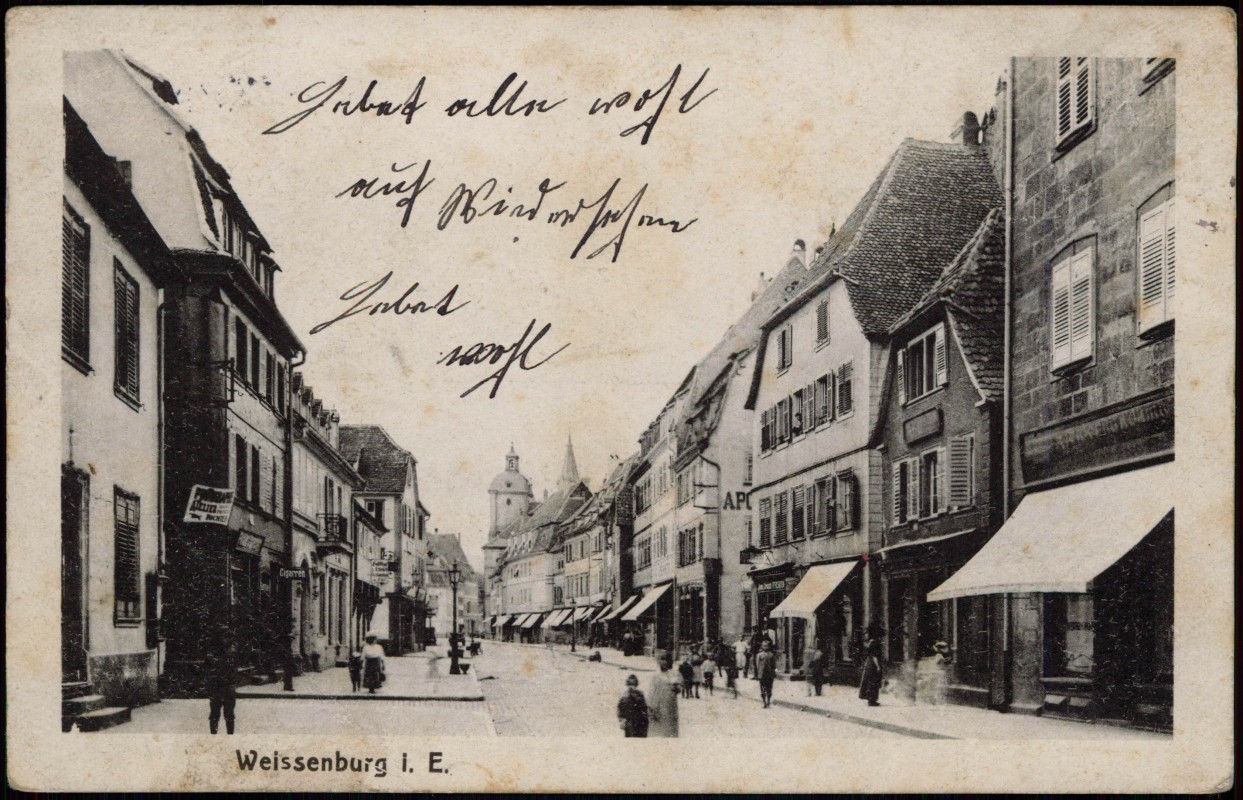 Lebet alle wohl
auf Wiedersehen
Lebet
wohl
APO
Cigarren
Weissenburg i. E.